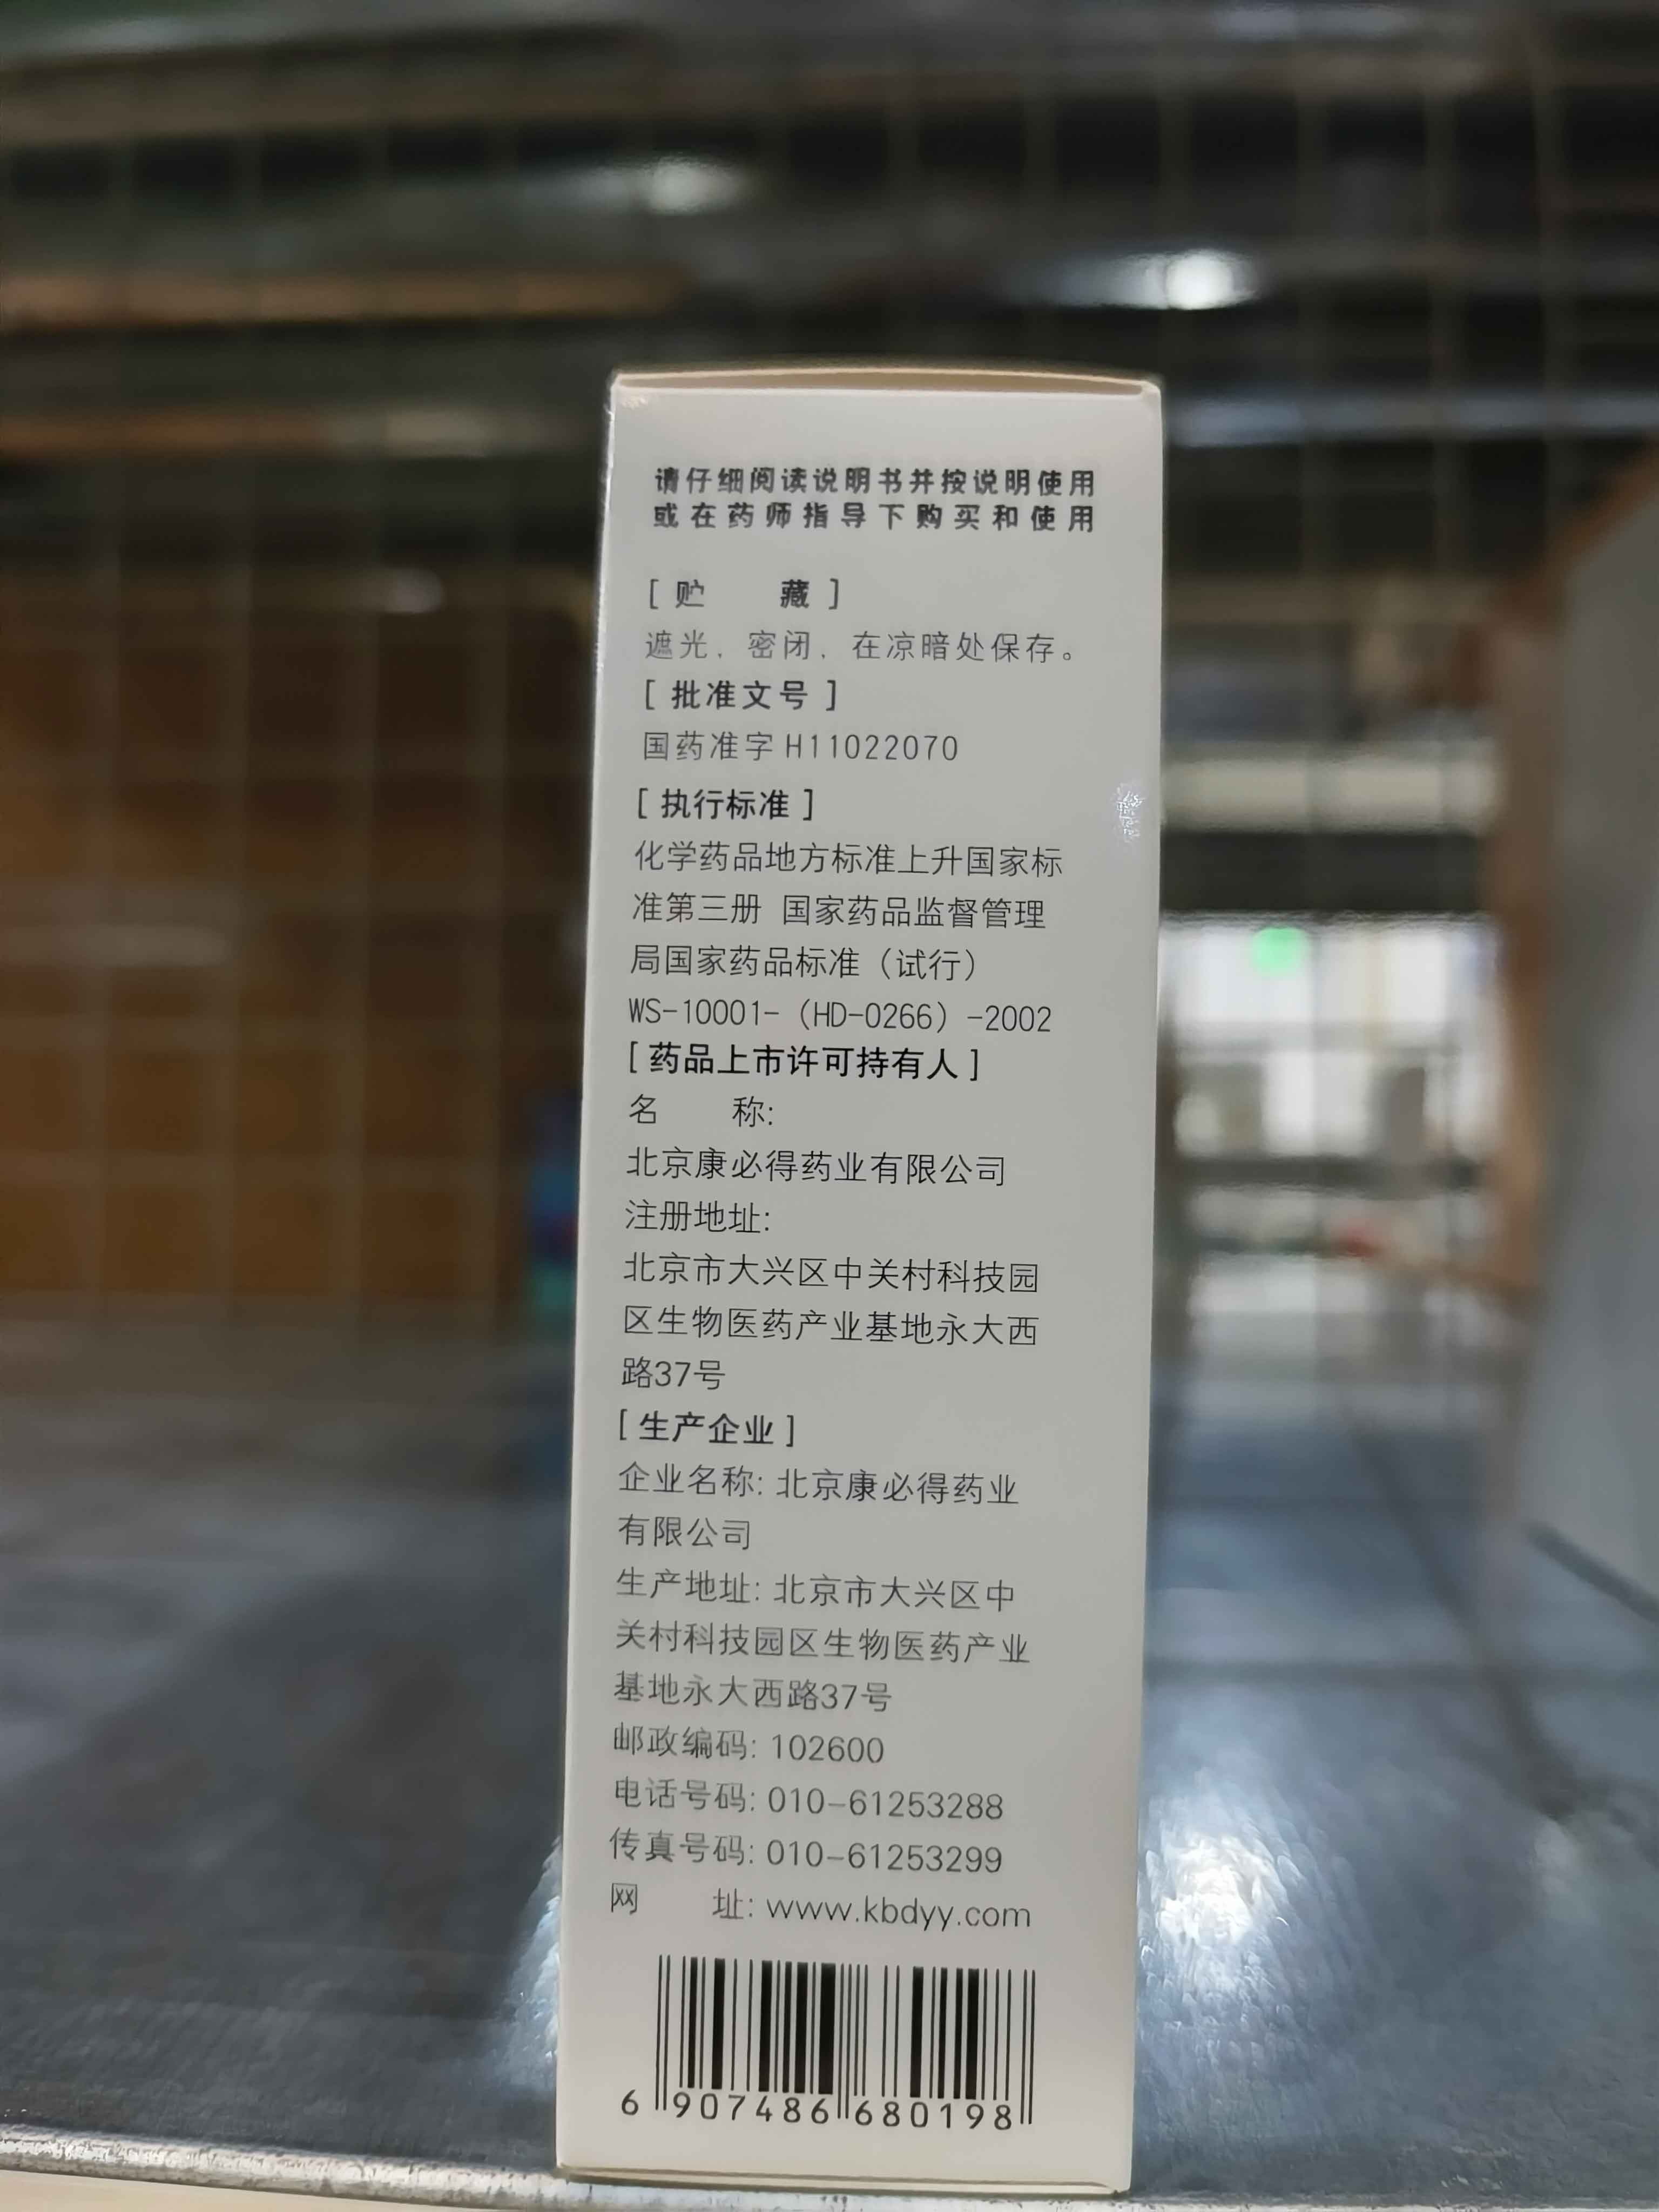 请仔细阅读说明书并按说明使用
或在药师指导下购买和使用
[贮 藏]
遮光，密闭，在凉暗处保存。
[批准文号]
国药准字H11022070
[执行标准]
化学药品地方标准上升国家标
准第三册 国家药品监督管理
局国家药品标准（试行）
WS-10001-（HD-0266）-2002
[药品上市许可持有人]
名 称:
北京康必得药业有限公司
注册地址:
北京市大兴区中关村科技园
区生物医药产业基地永大西
路37号
[生产企业]
企业名称: 北京康必得药业
有限公司
生产地址: 北京市大兴区中
关村科技园区生物医药产业
基地永大西路37号
邮政编码: 102600
电话号码: 010-61253288
传真号码: 010-61253299
网 址: www.kbdyy.com
6 907486 680198